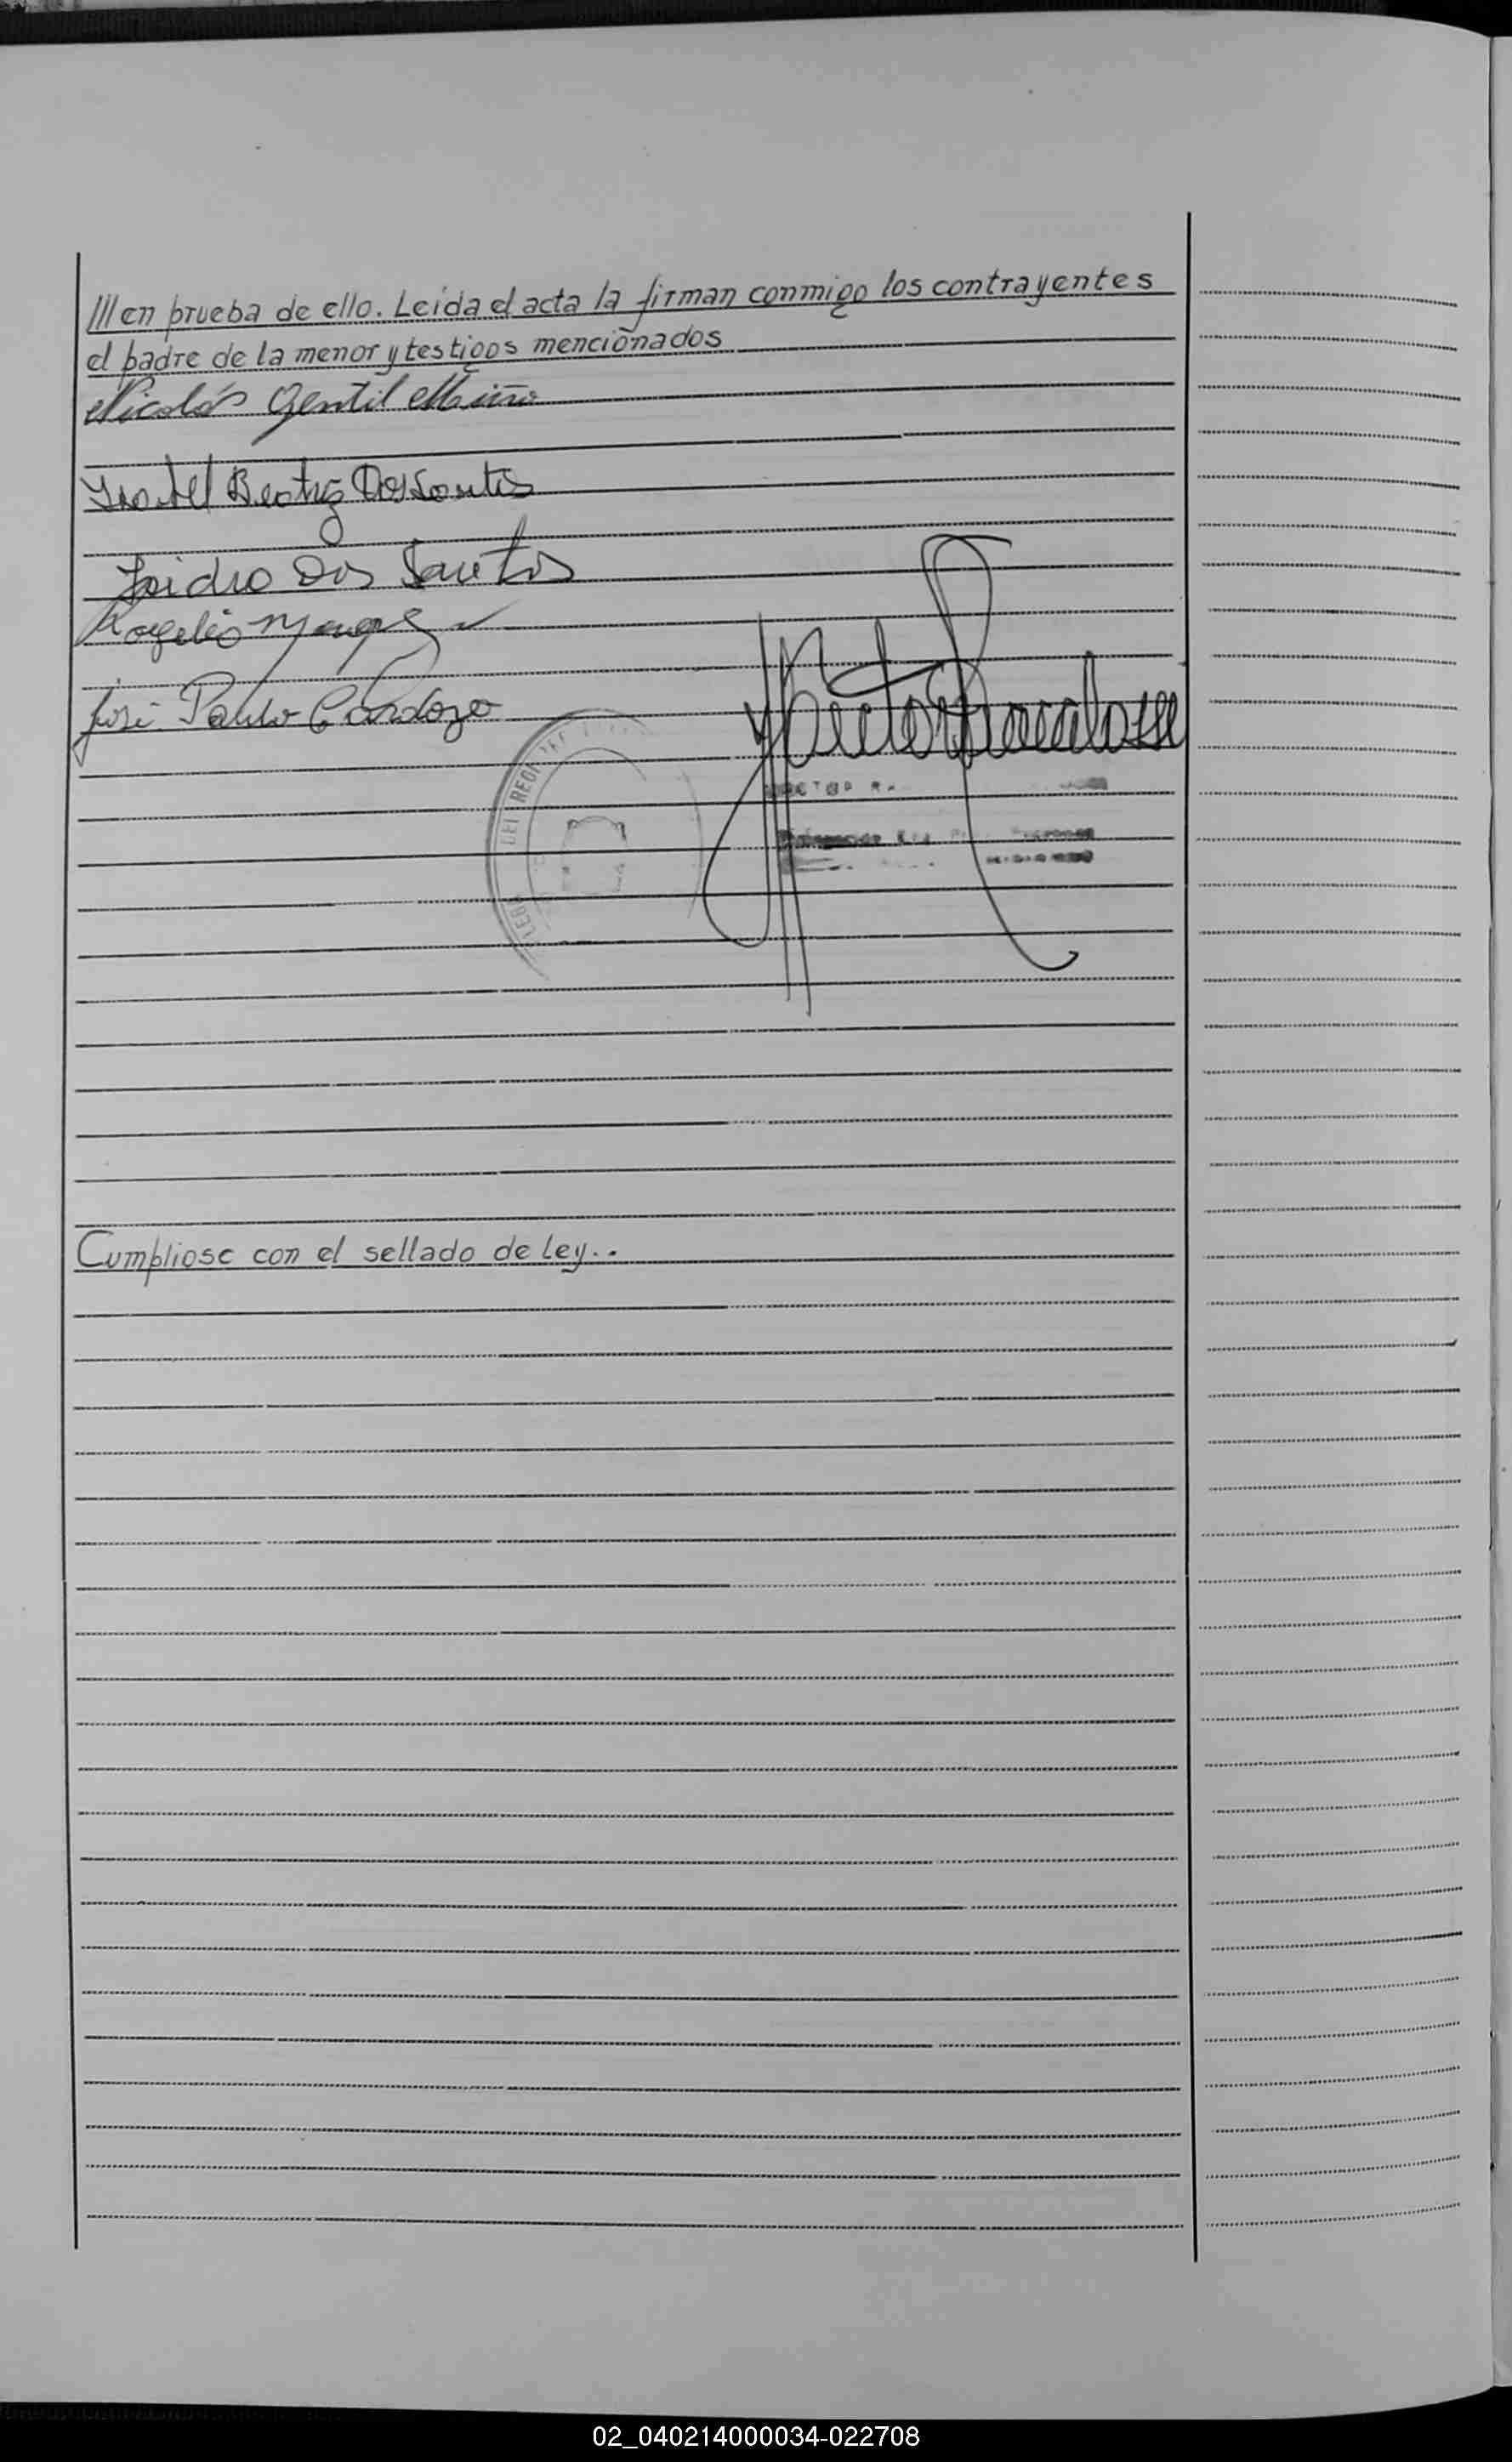 ///en prueba de ello. Leida el acta la firman conmigo los contrayentes
el padre de la menor y testigos mencionados
Nicolás Gentil Miño
Ysabel Beatriz Dos Santos
Isidro Dos Santos
Rogelio
José Pablo Cardozo
Hector
DEL REG
Cumpliose con el sellado de Ley..
02_040214000034-022708